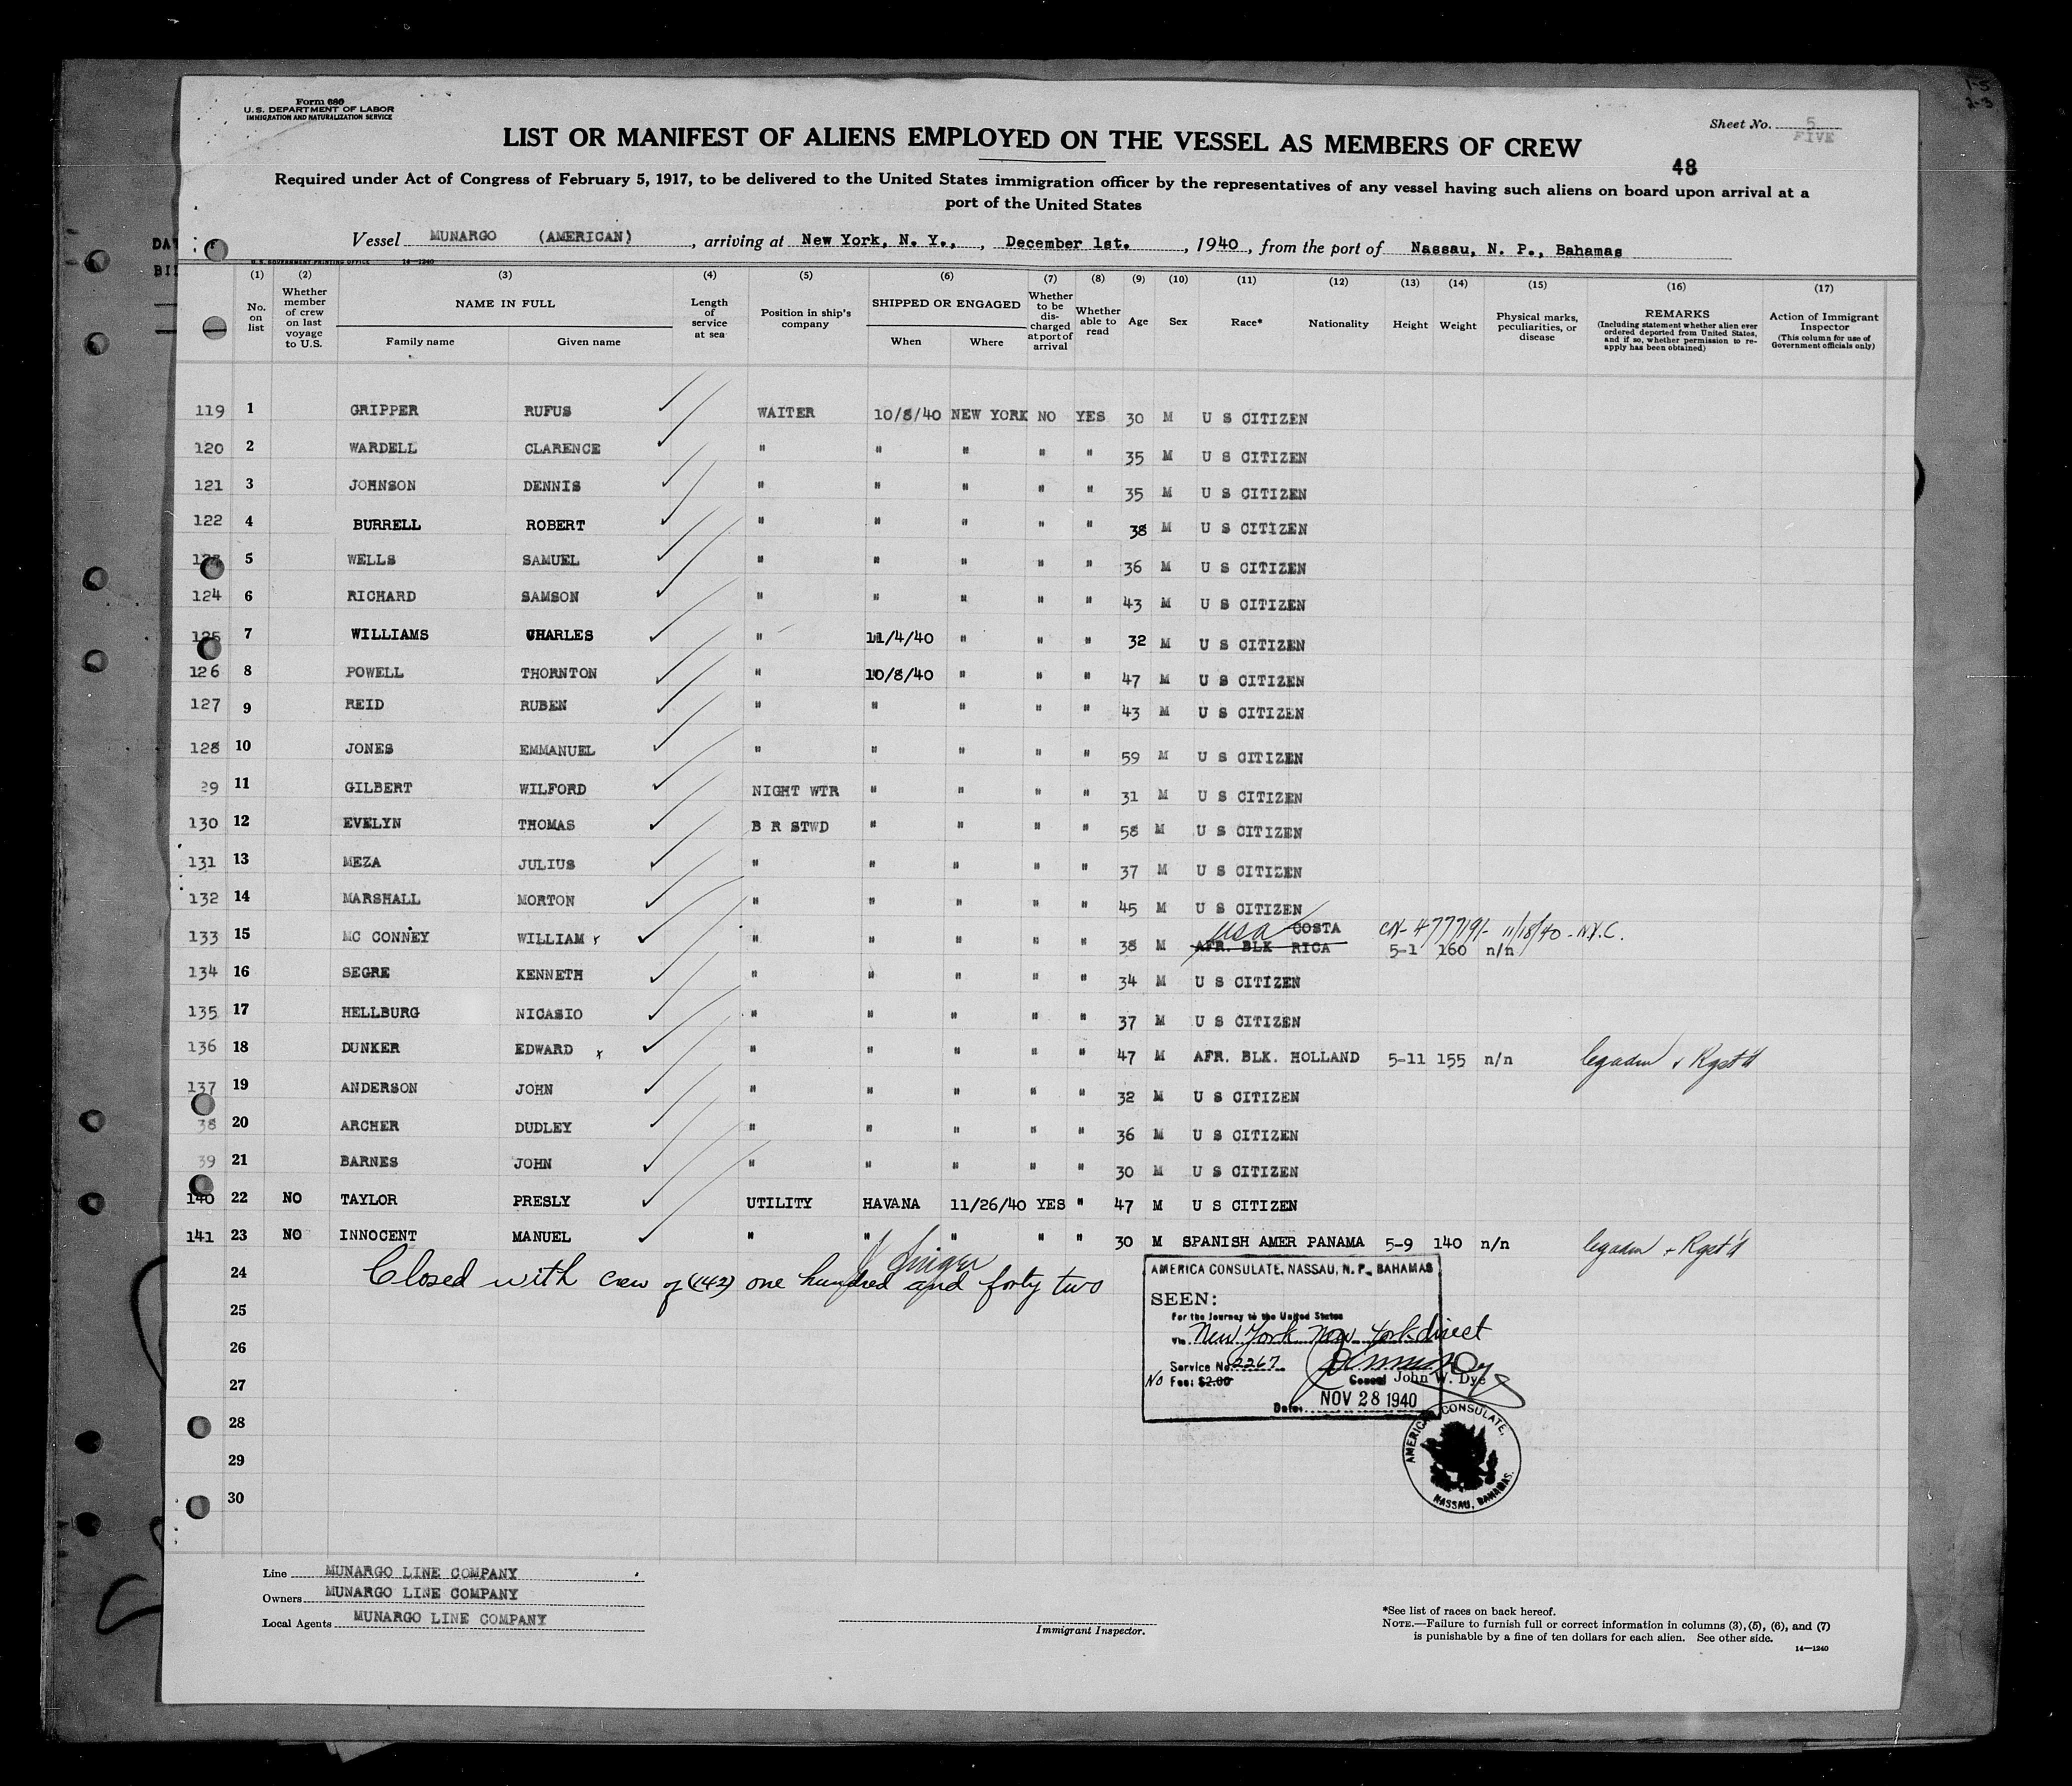 1-5
2-3
Form 680
U. S. DEPARTMENT OF LABOR
IMMIGRATION AND NATURALIZATION SERVICE
Sheet No. 5
FIVE
LIST OR MANIFEST OF ALIENS EMPLOYED ON THE VESSEL AS MEMBERS OF CREW
48
Required under Act of Congress of February 5, 1917, to be delivered to the United States immigration officer by the representatives of any vessel having such aliens on board upon arrival at a
port of the United States
Vessel MUNARGO (AMERICAN), arriving at New York, N. Y., , December 1st. , 1940, from the port of Nassau, N. P., Bahamas
U. S. GOVERNMENT PRINTING OFFICE 14-1240
(1) (2) (3) (4) (5) (6) (7) (8) (9) (10) (11) (12) (13) (14) (15) (16) (17)
No. on list
Whether member of crew on last voyage to U.S.
NAME IN FULL
Family name Given name
Length of service at sea
Position in ship's company
SHIPPED OR ENGAGED
When Where
Whether to be discharged at port of arrival
Whether able to read
Age Sex Race* Nationality Height Weight
Physical marks, peculiarities, or disease
REMARKS
(Including statement whether alien ever ordered deported from United States, and if so, whether permission to reapply has been obtained)
Action of Immigrant Inspector
(This column for use of Government officials only)
119 1 GRIPPER RUFUS WAITER 10/8/40 NEW YORK NO YES 30 M U S CITIZEN
120 2 WARDELL CLARENCE " " " " " 35 M U S CITIZEN
121 3 JOHNSON DENNIS " " " " " 35 M U S CITIZEN
122 4 BURRELL ROBERT " " " " " 38 M U S CITIZEN
123 5 WELLS SAMUEL " " " " " 36 M U S CITIZEN
124 6 RICHARD SAMSON " " " " " 43 M U S CITIZEN
125 7 WILLIAMS CHARLES " 11/4/40 " " " 32 M U S CITIZEN
126 8 POWELL THORNTON " 10/8/40 " " " 47 M U S CITIZEN
127 9 REID RUBEN " " " " " 43 M U S CITIZEN
128 10 JONES EMMANUEL " " " " " 59 M U S CITIZEN
29 11 GILBERT WILFORD NIGHT WTR " " " " 31 M U S CITIZEN
130 12 EVELYN THOMAS B R STWD " " " " 58 M U S CITIZEN
131 13 MEZA JULIUS " " " " " 37 M U S CITIZEN
132 14 MARSHALL MORTON " " " " " 45 M U S CITIZEN
133 15 MC CONNEY WILLIAM x " " " " " 38 M AFR. BLK COSTA RICA usa 5-1 160 n/n CN-4777191- 11/18/40 - N.Y.C.
134 16 SEGRE KENNETH " " " " " 34 M U S CITIZEN
135 17 HELLBURG NICASIO " " " " " 37 M U S CITIZEN
136 18 DUNKER EDWARD x " " " " " 47 M AFR. BLK. HOLLAND 5-11 155 n/n legadm + Rgst'd
137 19 ANDERSON JOHN " " " " " 32 M U S CITIZEN
38 20 ARCHER DUDLEY " " " " " 36 M U S CITIZEN
39 21 BARNES JOHN " " " " " 30 M U S CITIZEN
140 22 NO TAYLOR PRESLY UTILITY HAVANA 11/26/40 YES " 47 M U S CITIZEN
141 23 NO INNOCENT MANUEL " " " " " 30 M SPANISH AMER PANAMA 5-9 140 n/n legadm + Rgst'd
24 Closed with crew of (142) one hundred and forty two
25
26
27
28
29
30
AMERICA CONSULATE, NASSAU, N. P., BAHAMAS
SEEN:
For the Journey to the United States
Via New York New York direct
Service No. 2267
No Fee: $2.00
Consul John W. Dye
Date: NOV 28 1940
AMERICAN CONSULATE,
NASSAU, BAHAMAS.
Line MUNARGO LINE COMPANY
Owners MUNARGO LINE COMPANY
Local Agents MUNARGO LINE COMPANY
Immigrant Inspector.
*See list of races on back hereof.
NOTE.—Failure to furnish full or correct information in columns (3), (5), (6), and (7)
is punishable by a fine of ten dollars for each alien. See other side.
14—1240